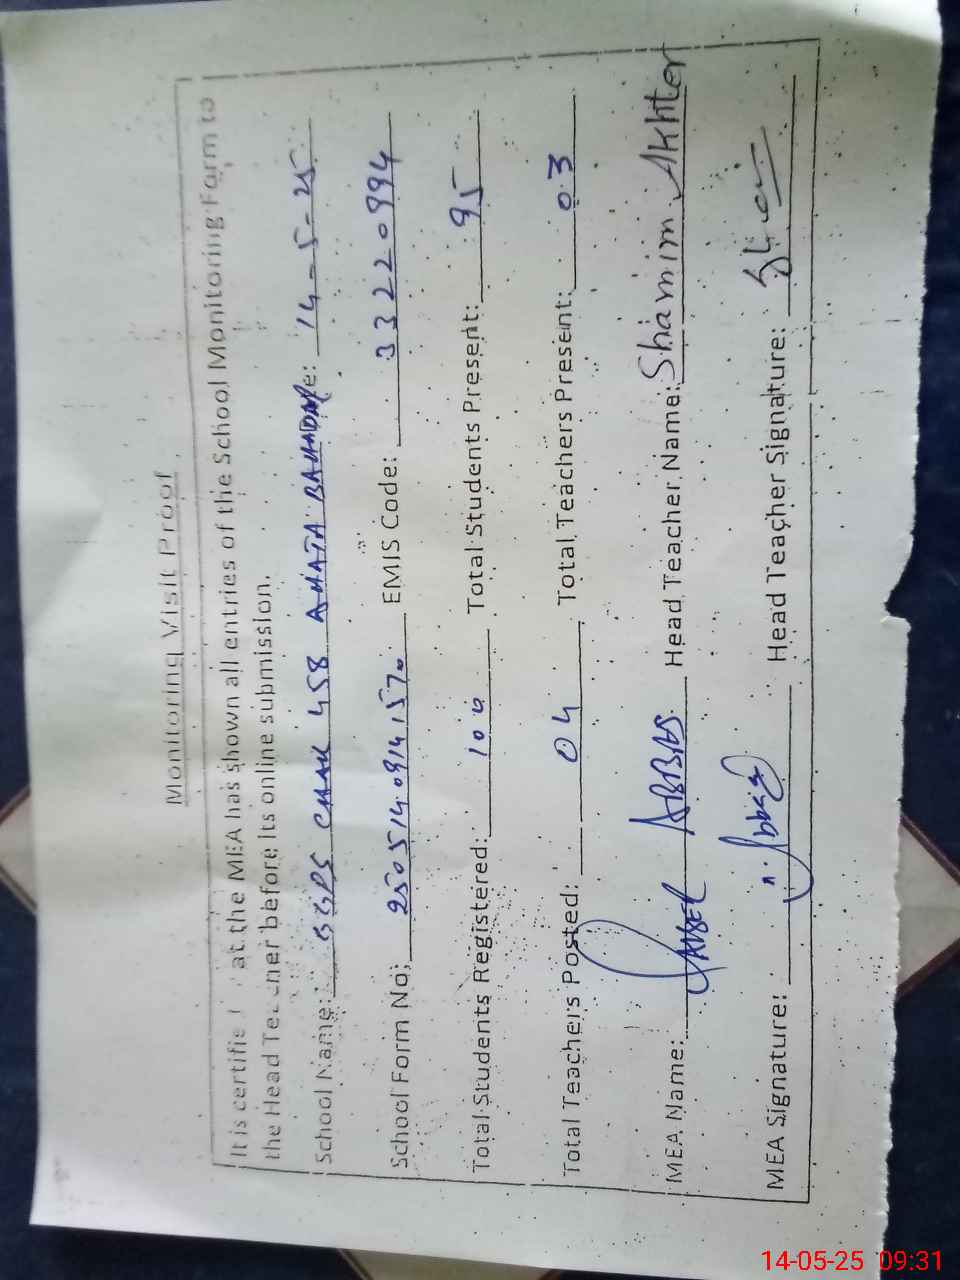 Monitoring Visit Proof
It is certifie at the MEA has shown all entries of the School Monitoring Form to
the Head Te ner before its online submission.
School Name: GGPS CHAK 458 AHATA BAHADAR e: 14-5-25
School Form No: 2505140914157. EMIS Code: 33220994
Total Students Registered: 100 Total Students Present: 95
Total Teachers Posted: 04 Total Teachers Present: 03
MEA Name: ABBAS Head Teacher Name: Shamim Akhter
MEA Signature: Head Teacher Signature:
14-05-25 09:31